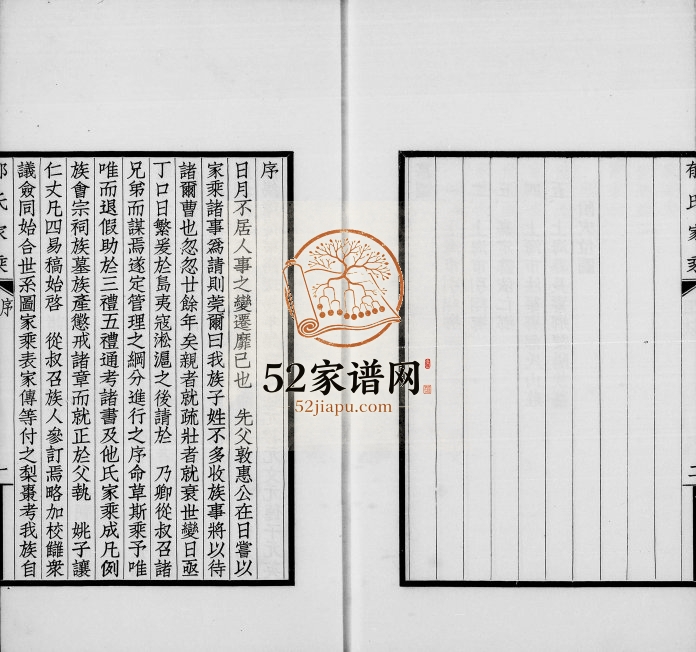 郁氏家乘
二
序
日月不居人事之變遷靡已也　先父敦惠公在日嘗以
家乘諸事爲請則莞爾曰我族子姓不多收族事將以待
諸爾曹也忽忽廿餘年矣親者就疏壯者就衰世變日亟
丁口日繁爰於島夷寇淞滬之後請於　乃卿從叔召諸
兄弟而謀焉遂定管理之綱分進行之序命草斯乘予唯
唯而退假助於三禮五禮通考諸書及他氏家乘成凡例
族會宗祠族墓族產懲戒諸章而就正於父執　姚子讓
仁丈凡四易稿始啓　從叔召族人參訂焉略加校讎衆
議僉同始合世系圖家乘表家傳等付之梨棗考我族自
郁氏家乘
序
一
52家谱网
52jiapu.com